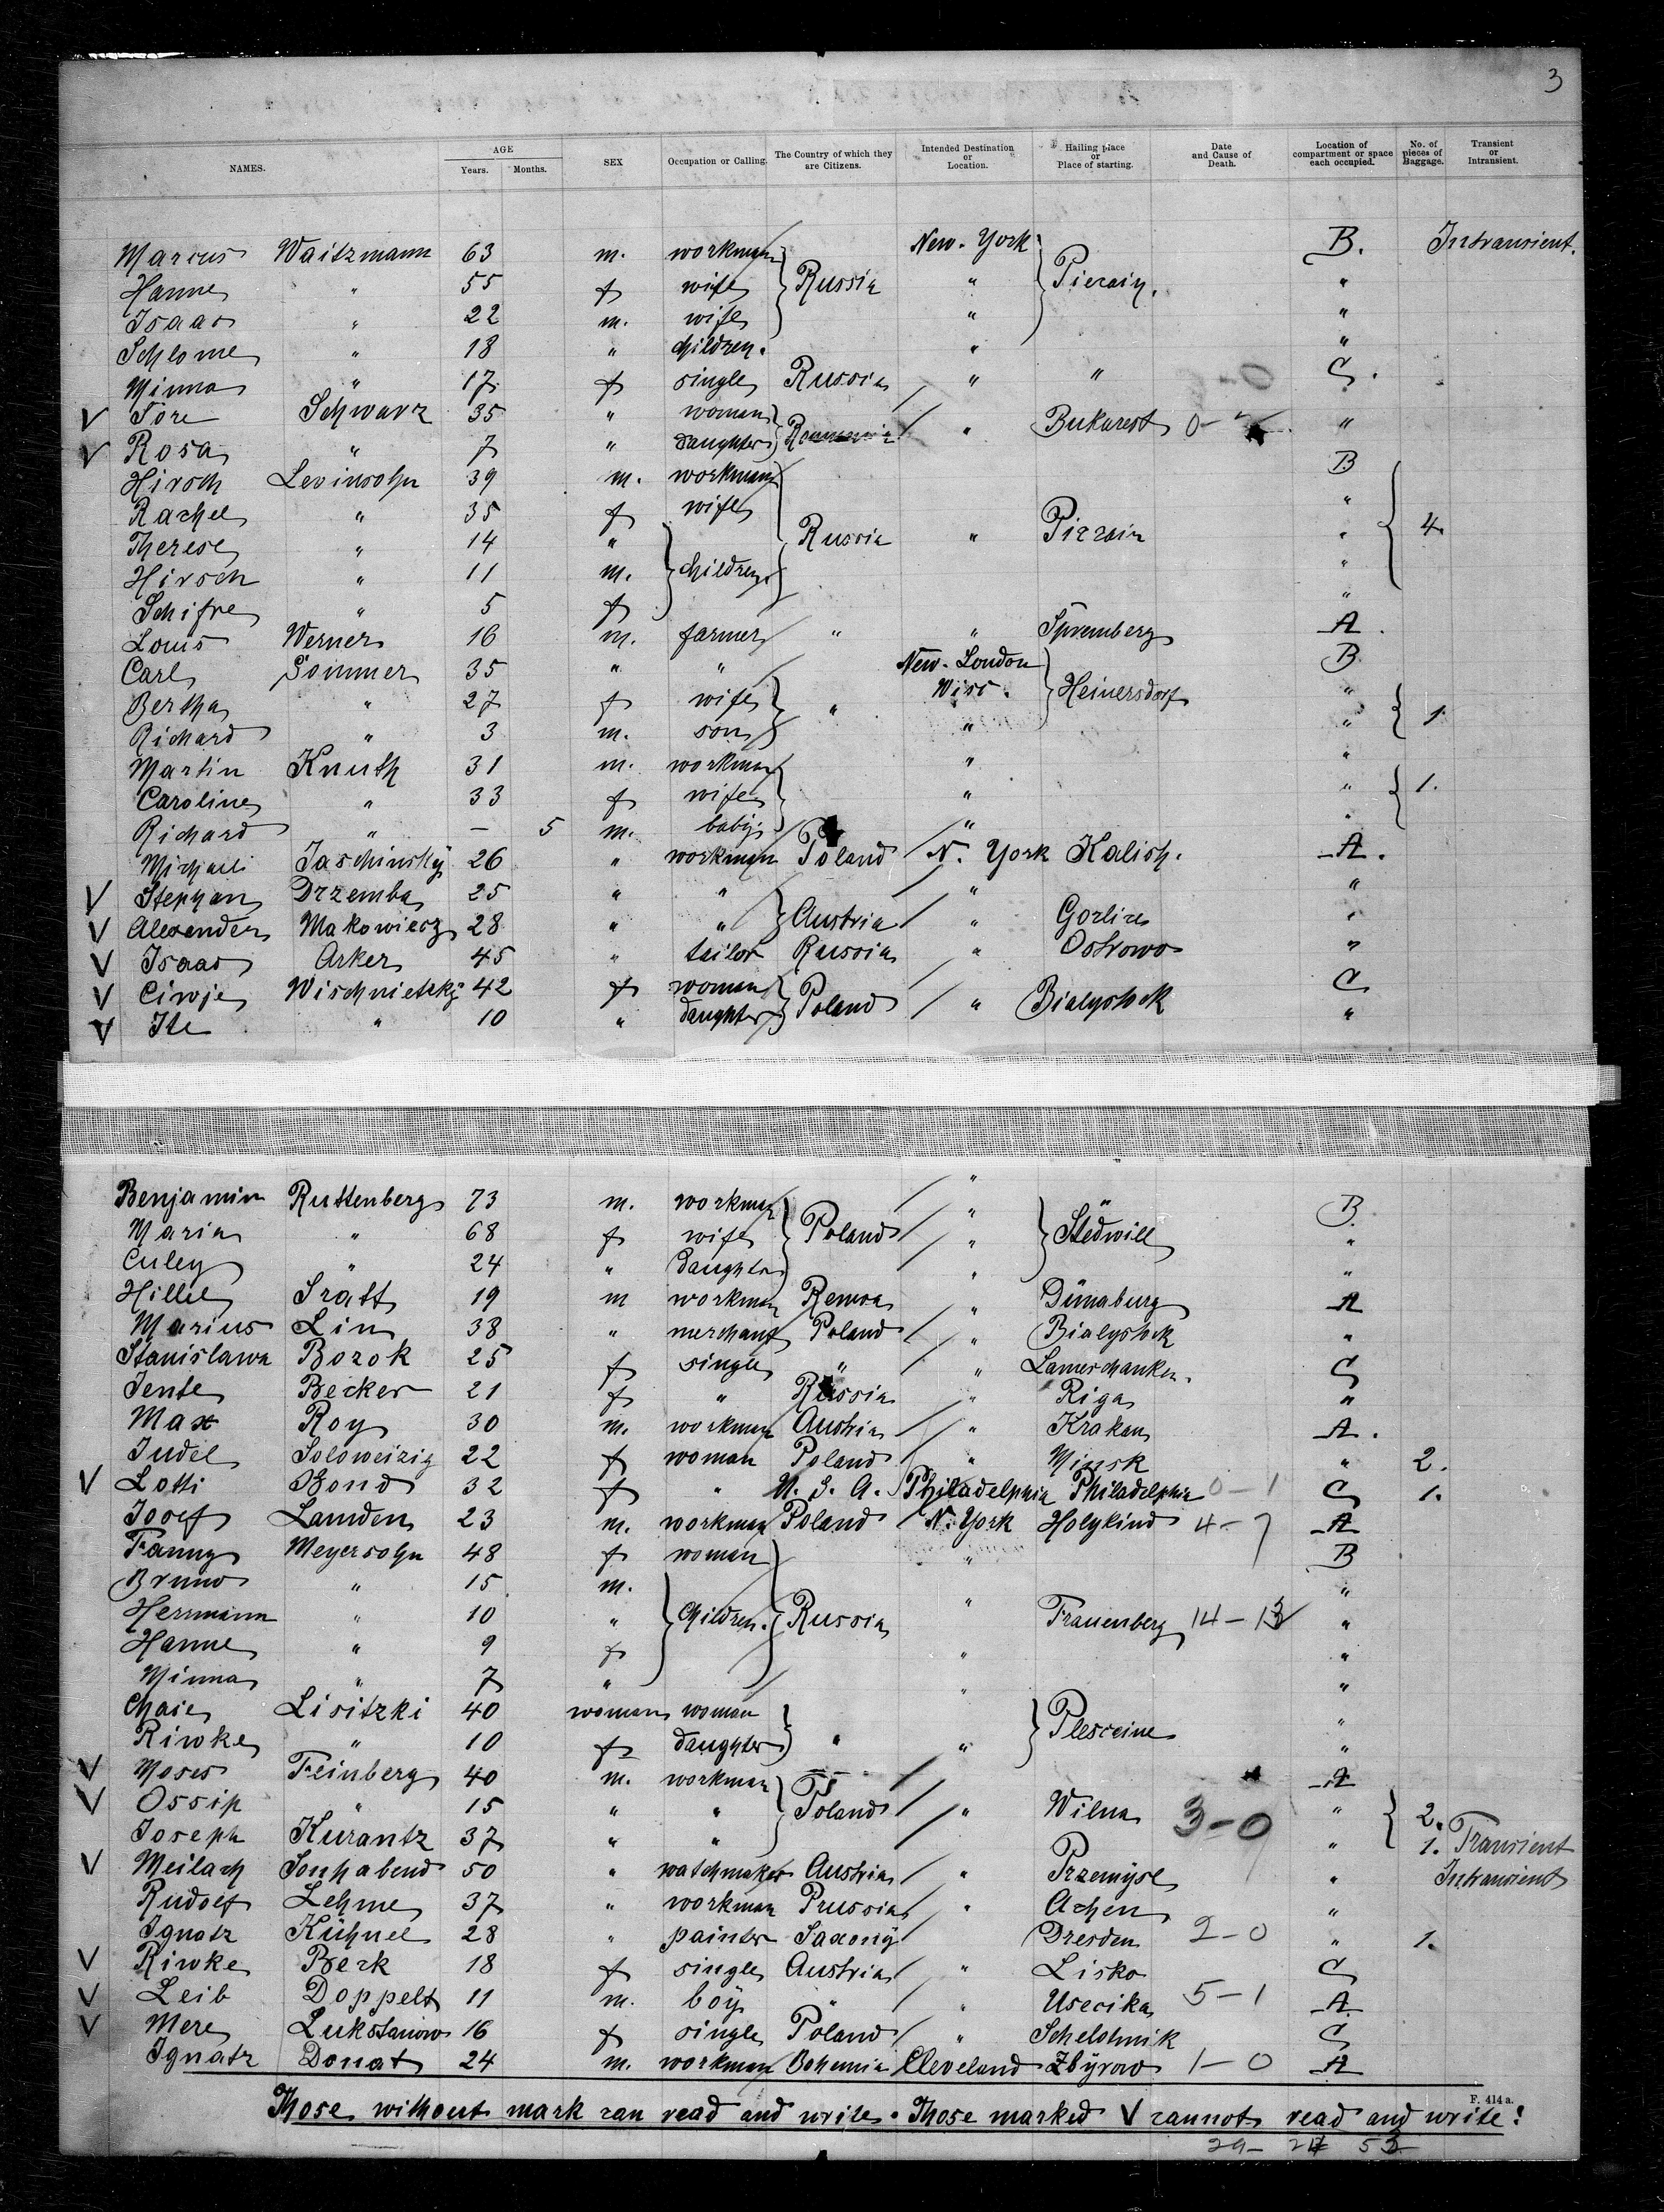 3
NAMES. AGE Years. Months. SEX Occupation or Calling. The Country of which they are Citizens. Intended Destination or Location. Hailing place or Place of starting. Date and Cause of Death. Location of compartment or space each occupied. No. of pieces of Baggage. Transient or Intransient.
Marcus Waitzmann 63 m. workman New-York B. Intransient.
Hanne " 55 f wife Russia "  "
Isaac " 22 m. wife " "
Schlome " 18 " children. " "
Minna " 17 f single Russia " " C.
V Sore Schwarz 35 " woman " Bukarest "
V Rosa " 7 " daughter
Hirsch Levinsohn 39 m. workman B
Rachel " 35 f wife "
Therese " 14 " Russia " " 4.
Hirsch " 11 m. children. "
Schifre " 5 f "
Louis Werner 16 m. farmer " " Spremberg A.
Carl Sommer 35 " " New-London B
Bertha " 27 f wife " Wisc. Heinersdorf "
Richard " 3 m. son " " 1.
Martin Knuth 31 m. workman " "
Caroline " 33 f wife " " 1.
Richard " — 5 m. baby. " "
Michael Jaschinsky 26 " workman Poland N. York Kalish. A.
V Stephan Drzemba 25 " " " "
V Alexander Makowiecz 28 " " Austria " Gorlice "
V Isaac Arker 45 " tailor Russia " Ostrowo "
V Ciwje Wischnietzky 42 f woman Poland " Bialystok C
V Ite " 10 " daughter "
"
Benjamin Ruttenberg 73 m. workman " B.
Maria " 68 f wife Poland " Stedwill "
Culey " 24 " daughter " "
Hillel Sratt 19 m workman " Dünaburg A
Marius Lin 38 " merchant Poland " Bialystok "
Stanislawa Bozok 25 f single " " C
Jente Becker 21 f " Russia " Riga "
Max Roy 30 m. workman Austria " Krakau A.
Judel Soloweizig 22 f woman Poland " Minsk " 2.
V Lotti Bond 32 f " U.S.A. Philadelphia Philadelphia 0-1 C 1.
Josef Lamden 23 m. workman Poland N. York Holykind 4-7 A
Fanny Meyersohn 48 f woman " B
Bruno " 15 m. "
Herrmann " 10 " children. Russia " Frauenberg 14-13 "
Hanne " 9 f " "
Minna " 7 " " "
Chaie Lisitzki 40 woman woman Plesceine "
Riwke " 10 f daughter " " "
V Moses Feinberg 40 m. workman A
V Ossip " 15 " " Poland " Wilna 3-0 " 2.
Joseph Kurantz 37 " " " 1. Transient
V Meilach Sonhabend 50 " watchmaker Austria " Przemysl " Intransient
Rudolf Lehme 37 " workman Prussia " Achen "
Ignatz Kühnel 28 " painter Saxony Dresden 2-0 " 1.
V Riwke Berk 18 f single Austria " Lisko C
V Leib Doppelt 11 m. boy " " Usecika 5-1 A
V Mere Lukstanow 16 f single Poland " Schelotnik C
Ignatz Donat 24 m. workman Bohemia Cleveland Zbyrow 1-0 A
F. 414 a.
Those without mark can read and write. Those marked V cannot read and write!